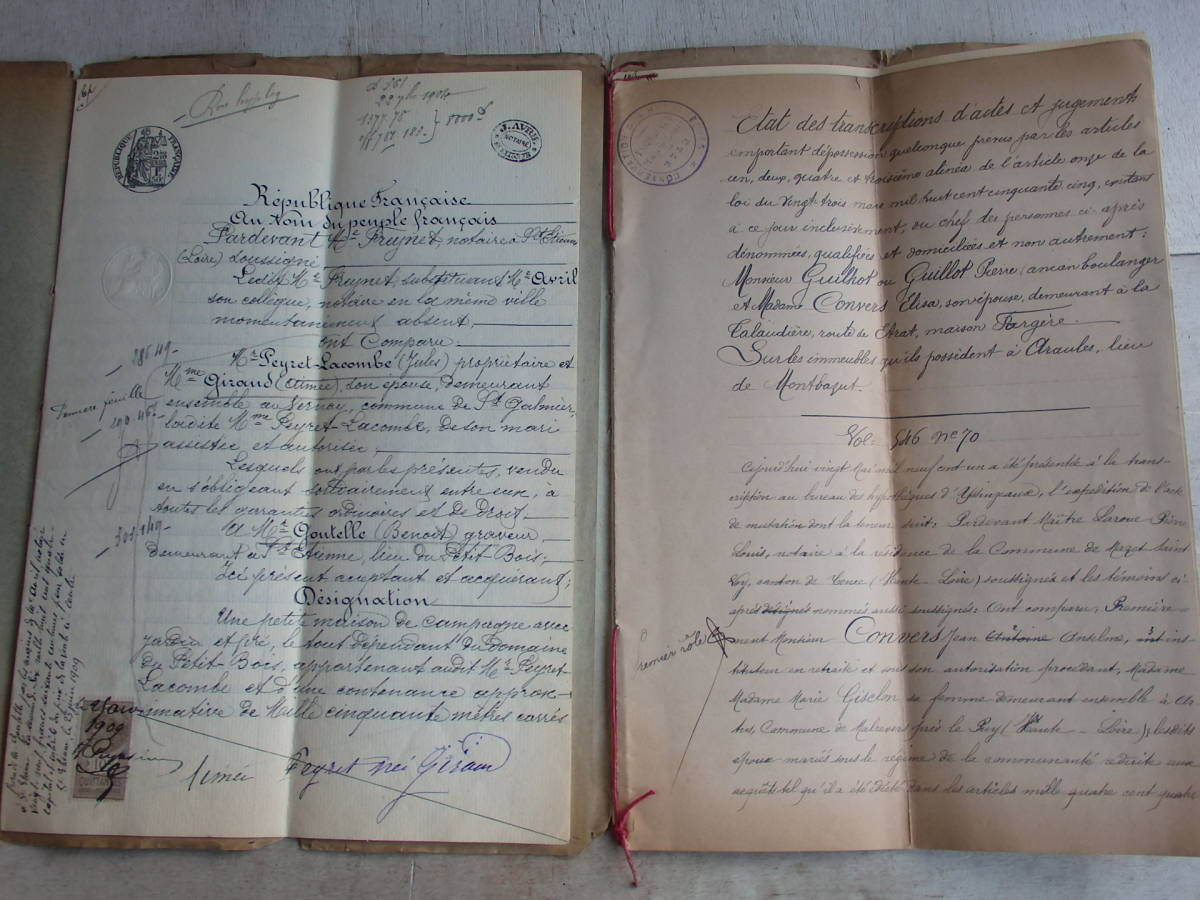 Bon hyp leg
22 1904
1377.75
8000
J. AVRIL
NOTAIRE
St ETIENNE
RÉPUBLIQUE FRANÇAISE
République Française
Au Nom du peuple français
Pardevant Me Freynet notaire à St Etienne
(Loire) soussigné
Ledit Me Freynet, substituant Me Avril
son collègue, notaire en la même ville
momentanément absent,
ont Comparu
Mr Peyret-Lacombe (Jules) propriétaire et
Mme Giraud (Aimée), son épouse, demeurant
ensemble au Vernay, commune de St Galmier,
ladite Mme Peyret-Lacombe, de son mari
assistée et autorisée,
Lesquels ont par les présentes, vendu
en s'obligeant solidairement entre eux, à
toutes les garanties ordinaires et de droit,
A Mr Goutelle (Benoît) graveur,
demeurant à St Etienne, lieu du Petit Bois;
Ici présent acceptant et acquérant;
Désignation
Une petite maison de campagne avec
jardin et pré, le tout dépendant du Domaine
du Petit-Bois, appartenant audit Mr Peyret-
Lacombe et d'une contenance approxi-
mative de Mille cinquante mètres carrés
1909
Aimée Peyret née Giraud
Première feuille
CONSERVATION
Etat des transcriptions d'actes et jugements
emportant dépossession quelconque prévus par les articles
un, deux, quatre et troisième alinéa de l'article onze de la
loi du vingt trois mars mil huit cent cinquante cinq, existant
à ce jour inclusivement, du chef des personnes ci-après
dénommées, qualifiées et domiciliées et non autrement:
Monsieur Guilhot ou Guillot Pierre (ancien boulanger
et Madame Convers Elisa, son épouse, demeurant à la
Talaudière, route de Etrat, maison Fargère.
Sur les immeubles qu'ils possèdent à Araules, lieu
de Montbazut.
Vol= 546 No 70
Cejourd'hui vingt Mai mil neuf cent un a été présentée à la trans-
cription au bureau des hypothèques d'Yssingeaux, l'expédition de l'acte
de mutation dont la teneur suit: Pardevant Maître Laroue Pierre
Louis, notaire à la résidence de la Commune de Mazet Saint
Voy, canton de Tence (Haute-Loire) soussigné et les témoins ci-
après désignés nommés aussi soussignés: Ont comparu: Première-
ment Monsieur Convers Jean Antoine Anselme, inst
instituteur en retraite et sous son autorisation procédant, Madame
Madame Marie Gisclon sa femme demeurant ensemble à
Commune de Malrevers près le Puy (Haute-Loire), lesdits
époux mariés sous le régime de la communauté réduite aux
acquêts tel qu'il a été édicté dans les articles mille quatre cent quatre
premier rôle